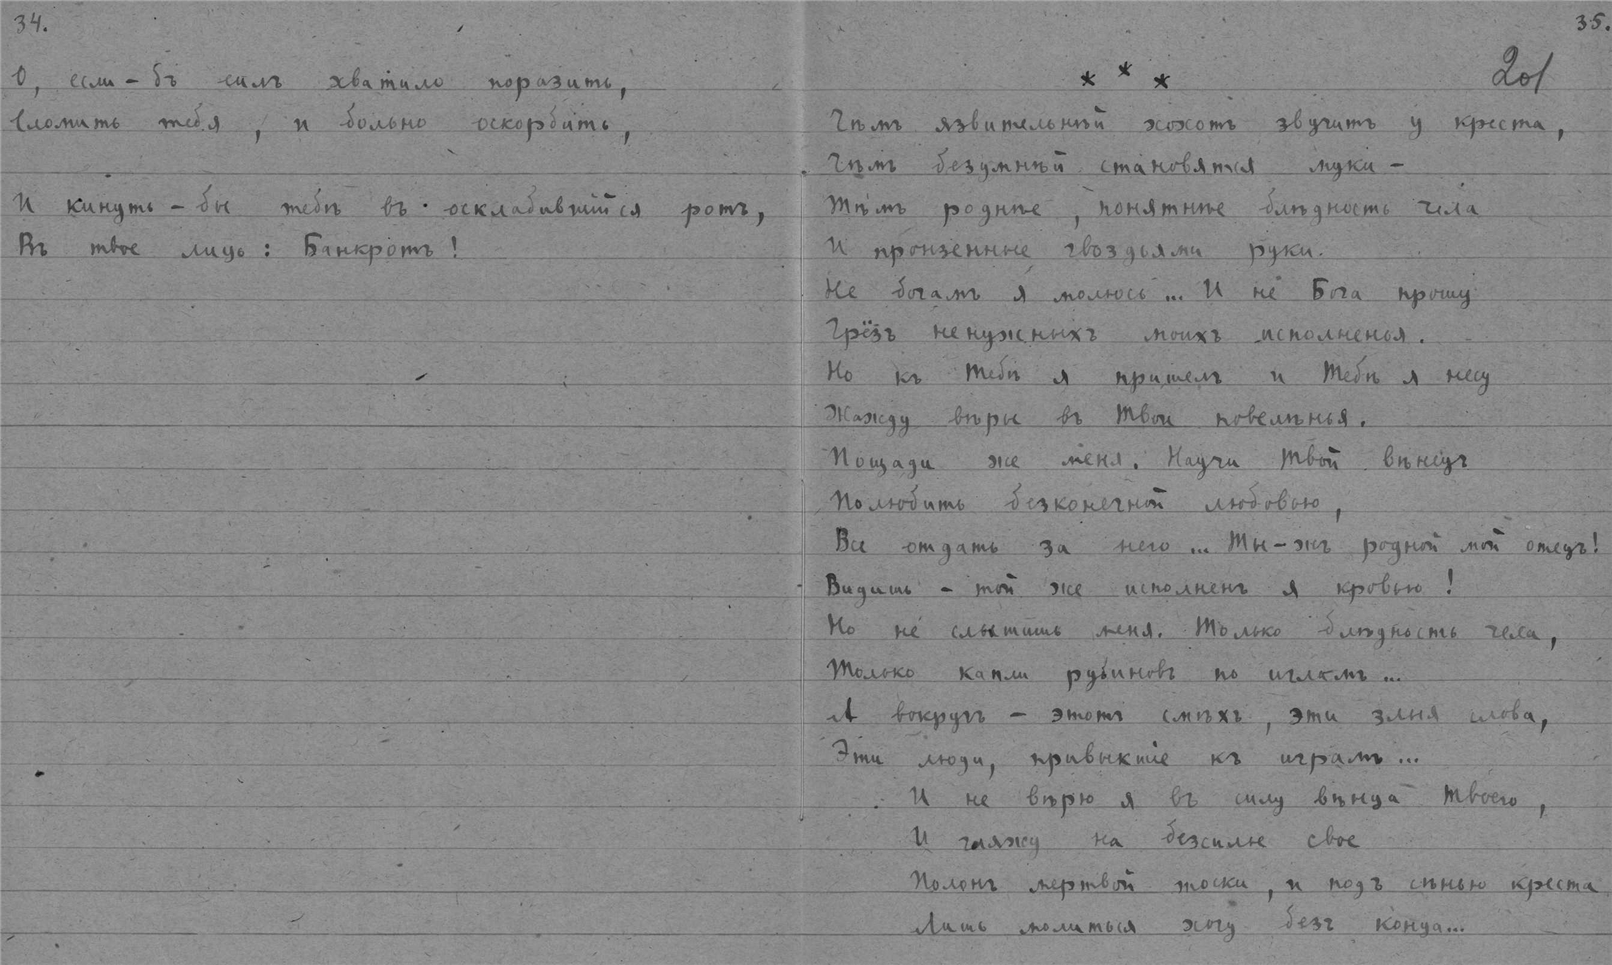 34.
О, если-бъ силъ хватило поразить,
Сломить тебя, и больно оскорбить,
И кинуть-бы тебѣ въ осклабившiйся ротъ,
Въ твое лицо: Банкротъ!
35.
201
* * *
Чѣмъ язвительнѣй хохотъ звучитъ у креста,
Чѣмъ безумнѣй становятся муки -
Тѣмъ роднѣе, понятнѣе блѣдность чела
И пронзенные гвоздьями руки.
Не богамъ я молюсь... И не Бога прошу
Грёзъ ненужныхъ моихъ исполненья.
Но къ Тебѣ я пришелъ и Тебѣ я несу
Жажду вѣры въ Твои повелѣнья.
Пощади же меня. Научи Твой вѣнецъ
Полюбить безконечной любовью,
Все отдать за него... Ты-жъ родной мой отецъ!
Видишь - той же исполненъ я кровью!
Но не слышишь меня. Только блѣдность чела,
Только капли рубиновъ по игламъ...
А вокругъ - этотъ смѣхъ, эти злыя слова,
Эти люди, привыкшiе къ играмъ...
И не вѣрю я въ силу вѣнца Твоего,
И гляжу на безсилье свое
Полонъ мертвой тоски, и подъ сѣнью креста
Лишь молиться хочу безъ конца...